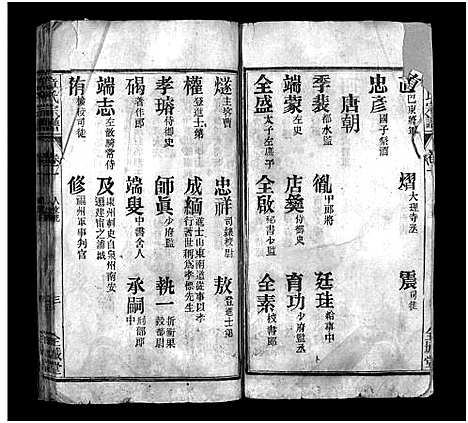 忠彥 國子祭酒
熠 大理寺丞
震 司徒
唐朝
季裴 都水監
胤 中郎將
廷珪 給事中
端蒙 左史
店彝 侍御史
育功 少府監
全盛 太子左庶子
全啟 秘書少監
全素 校書郎
燧 主客曹
忠祥 司隸校尉
敖 登進士第
權 登進士第
成緬 進士山東南道從事以孝行著於世稱爲孝標先生
孝璹 侍御史
師貞 少府監
執一 折衝果毅都尉
碣 著作郎
端叟 中書舍人
承嗣 刑部郎
端志 左散騎常侍
及 泉州刺史自泉州南安遷建甯之浦城
侑 檢校司徒
修 福州軍事判官
全城堂